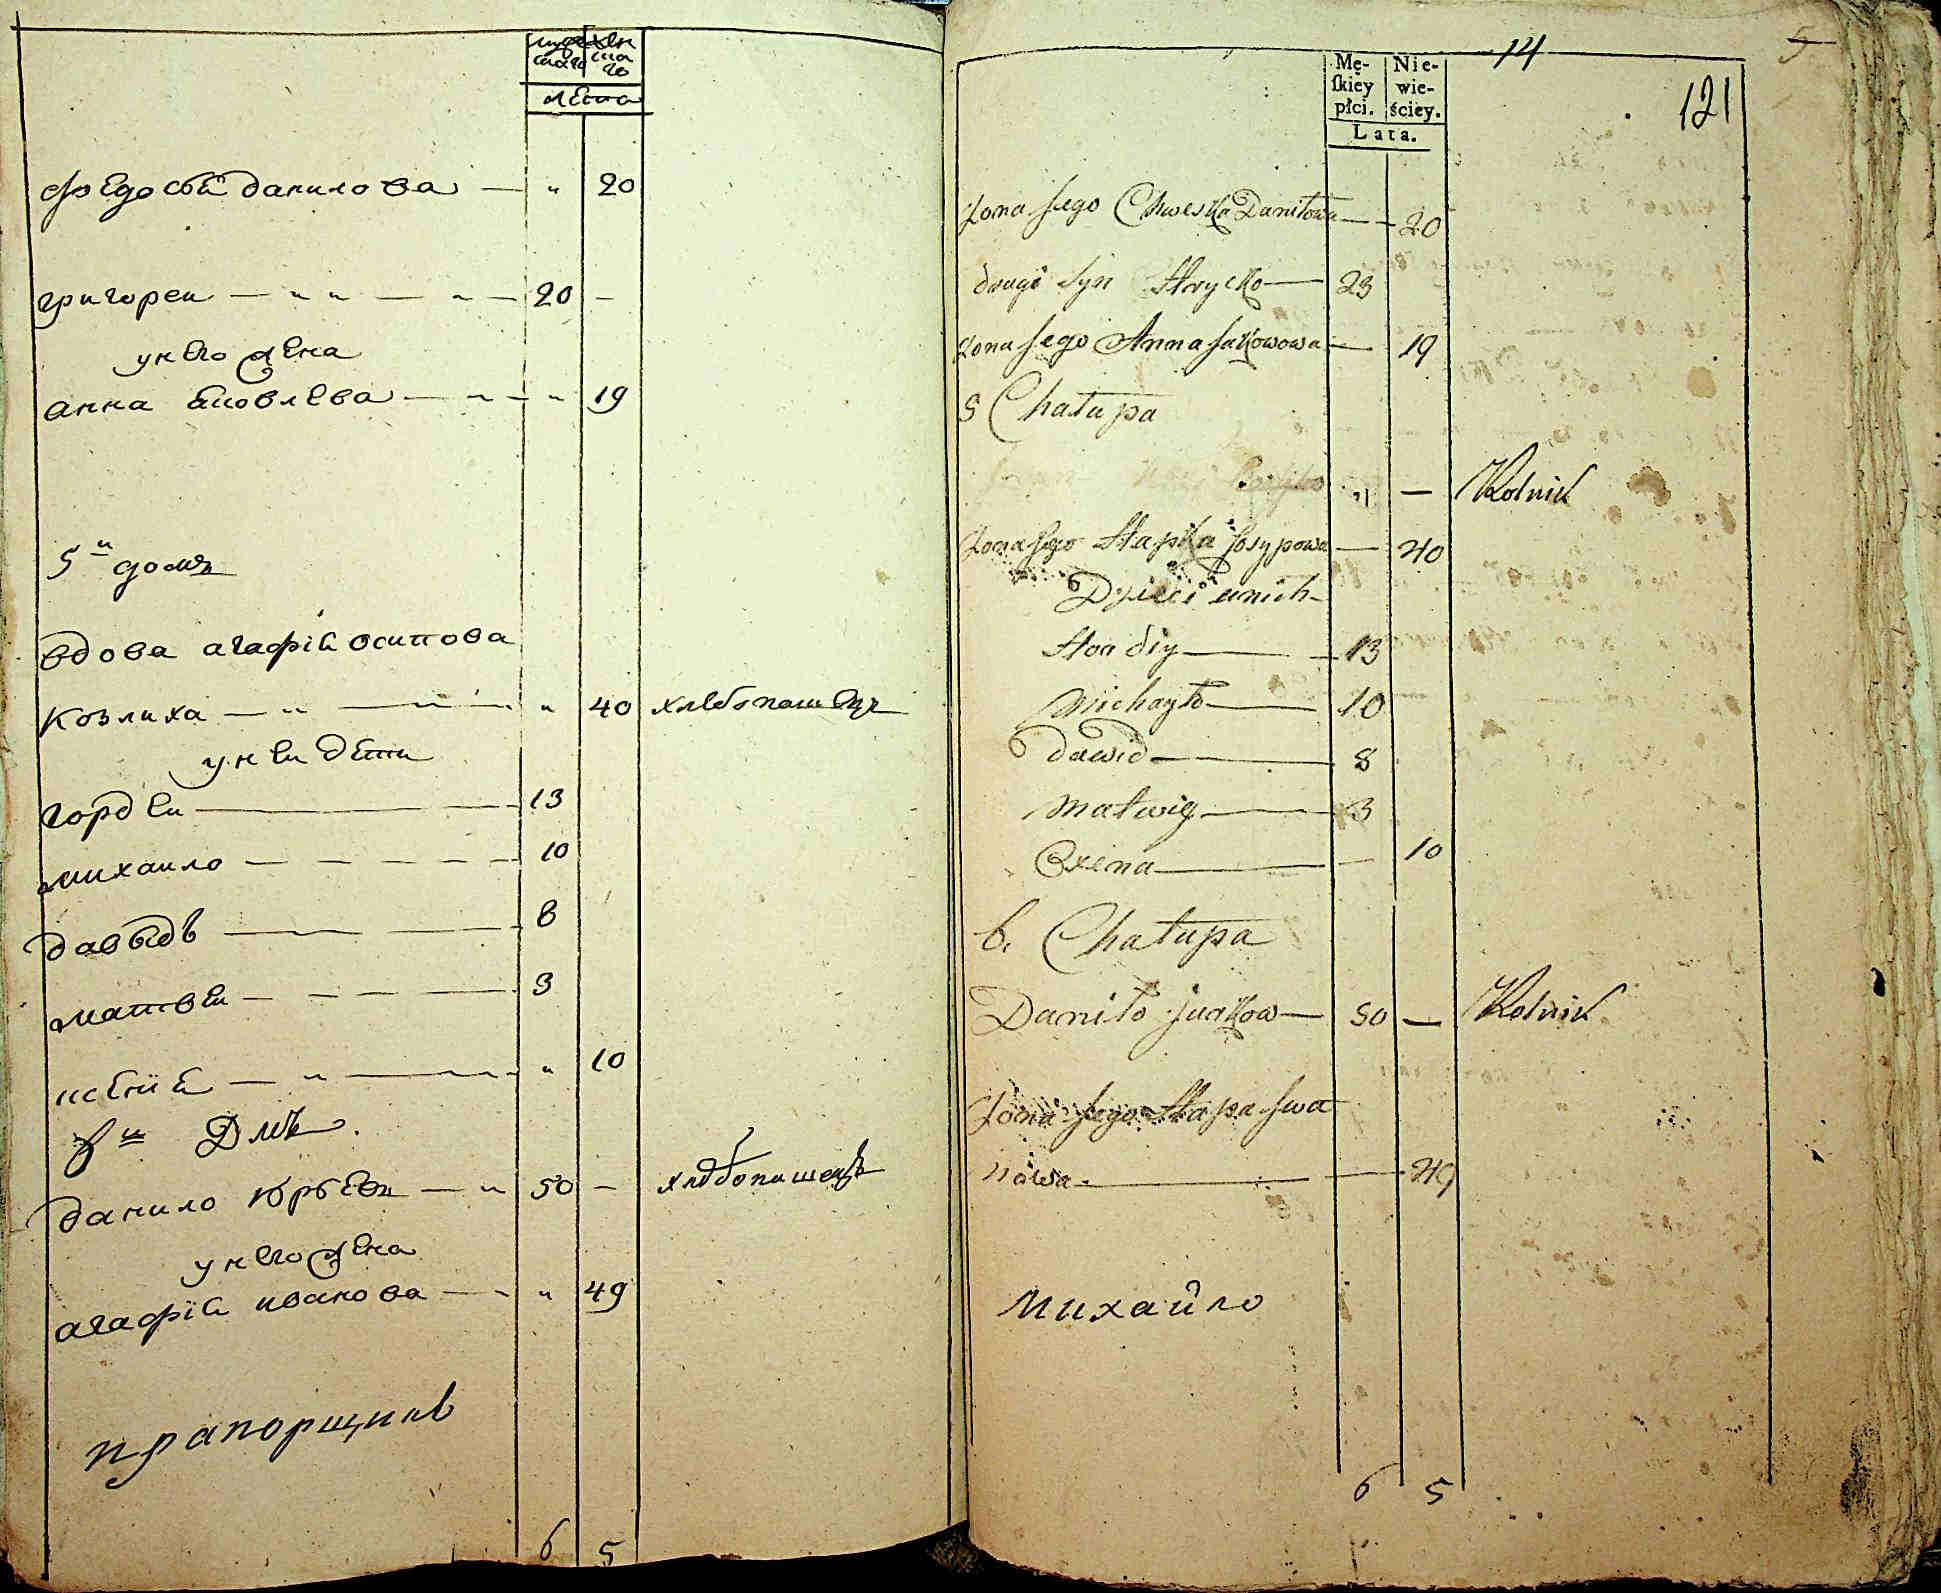 мужеска женска
го го
лета
федосья данилова — " 20
григореи — " " — " — 20 —
у него жена
анна яковлева — " — " 19
5й домъ
вдова агафія осипова
козлиха — " — " 40 хлебопашецъ
у неи дети
гордеи — 13
михаило — 10
давыдъ — 8
матвеи — 3
ксенія — " — " 10
6й Дмъ
данило юрьевъ — " 50 — хлебопашецъ
у него жена
агафія иванова — " 49
прапорщикъ
6 5
14 5
121
Mę- Nie-
skiey wie-
płci. ściey.
Lata.
Żona jego Chweska Daniłowa — 20
drugi syn Hrycko — 23
żona jego Anna Jakowowa — 19
5 Chałupa
" — Rolnik
Żona jego Hapka Josypowa — 40
Dzieci unich
Hordiy — 13
Michayło — 10
Dawid — 8
Matwiy — 3
Oxena — 10
6. Chałupa
Daniło Jurkow — 50 — Rolnik
Żona jego Hapa Iwa
nowa — 49
Михайло
6 5